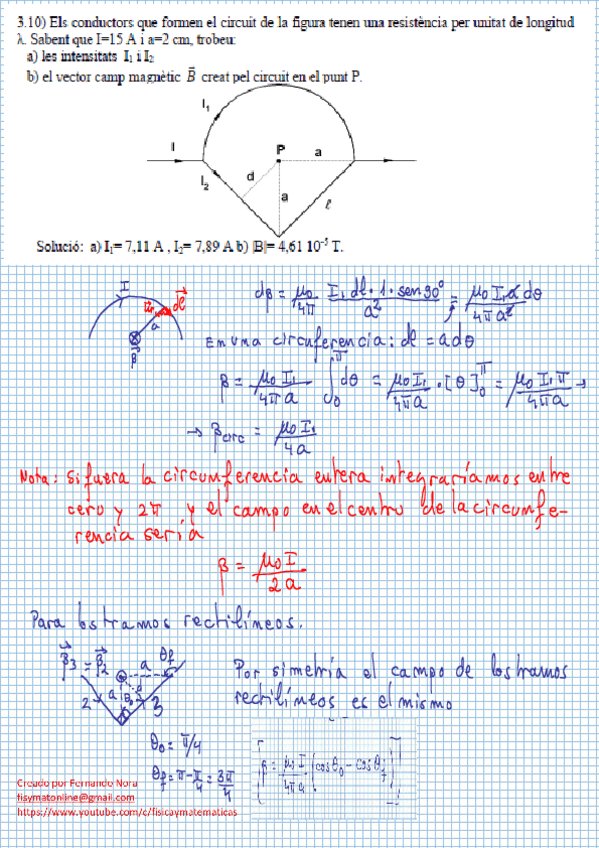 3.10) Els conductors que formen el circuit de la figura tenen una resistència per unitat de longitud
λ. Sabent que I=15 A i a=2 cm, trobeu:
a) les intensitats I₁ i I₂
b) el vector camp magnètic B⃗ creat pel circuit en el punt P.
I₁
I
P
a
I₂
d
a
ℓ
Solució: a) I₁= 7,11 A , I₂= 7,89 A b) |B|= 4,61 10⁻⁵ T.
I
a
dβ = μ₀/4π I₁ dl · 1 · sen 90° / a² = μ₀ I₁ a dθ / 4π a²
En una circunferencia: dl = a dθ
β = μ₀ I₁/4πa ∫₀^π dθ = μ₀ I₁/4πa · [θ]₀^π = μ₀ I₁ π/4πa →
→ βarc = μ₀ I₁/4a
Nota: si fuera la circumferencia entera integraríamos entre
cero y 2π y el campo en el centro de la circumfe-
rencia sería
β = μ₀ I/2a
Para los tramos rectilíneos.
β⃗₃ = β⃗₂ a θf
Por simetría el campo de los tramos
rectilíneos es el mismo
2 a θ₀ d 3
θ₀ = π/4
θf = π - π/4 = 3π/4
β = μ₀ I/4πa (cos θ₀ - cos θf)
Creado por Fernando Nora
fisymatonline@gmail.com
https://www.youtube.com/c/fisicaymatematicas